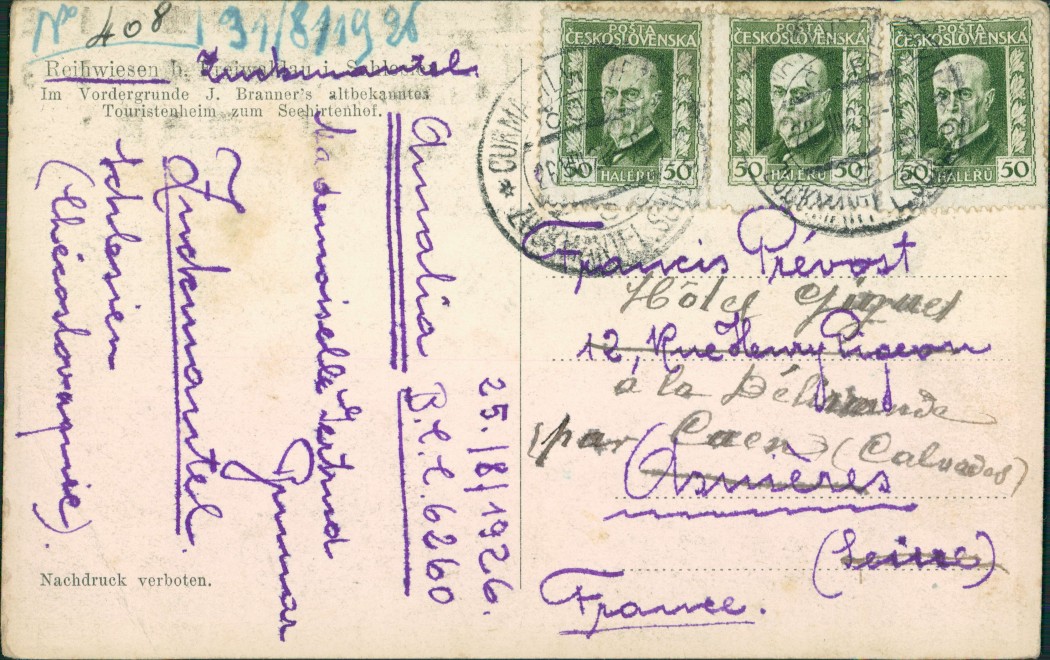 No 408 31/8/1926
Reihwiesen b. Freiwaldau i. Schles.
Zuckmantel.
Im Vordergrunde J. Branner's altbekanntes
Touristenheim zum Seehirtenhof.
Amalia B.C.C. 6260
25./8/1926.
Mademoiselle Gertrud
Zuckmantel.
Schlesien
(Chécoslovaquie).
Nachdruck verboten.
POŠTA
ČESKOSLOVENSKÁ
50 HALÉŘŮ 50
POŠTA
ČESKOSLOVENSKÁ
50 HALÉŘŮ 50
POŠTA
ČESKOSLOVENSKÁ
50 HALÉŘŮ 50
CUKMANTL
ZUCKMANTEL
Francis Prévost
Hôtel
12, Rue Henry Pigeon
à la Délivrande
par Caen (Calvados)
Asnières
(Seine)
France.